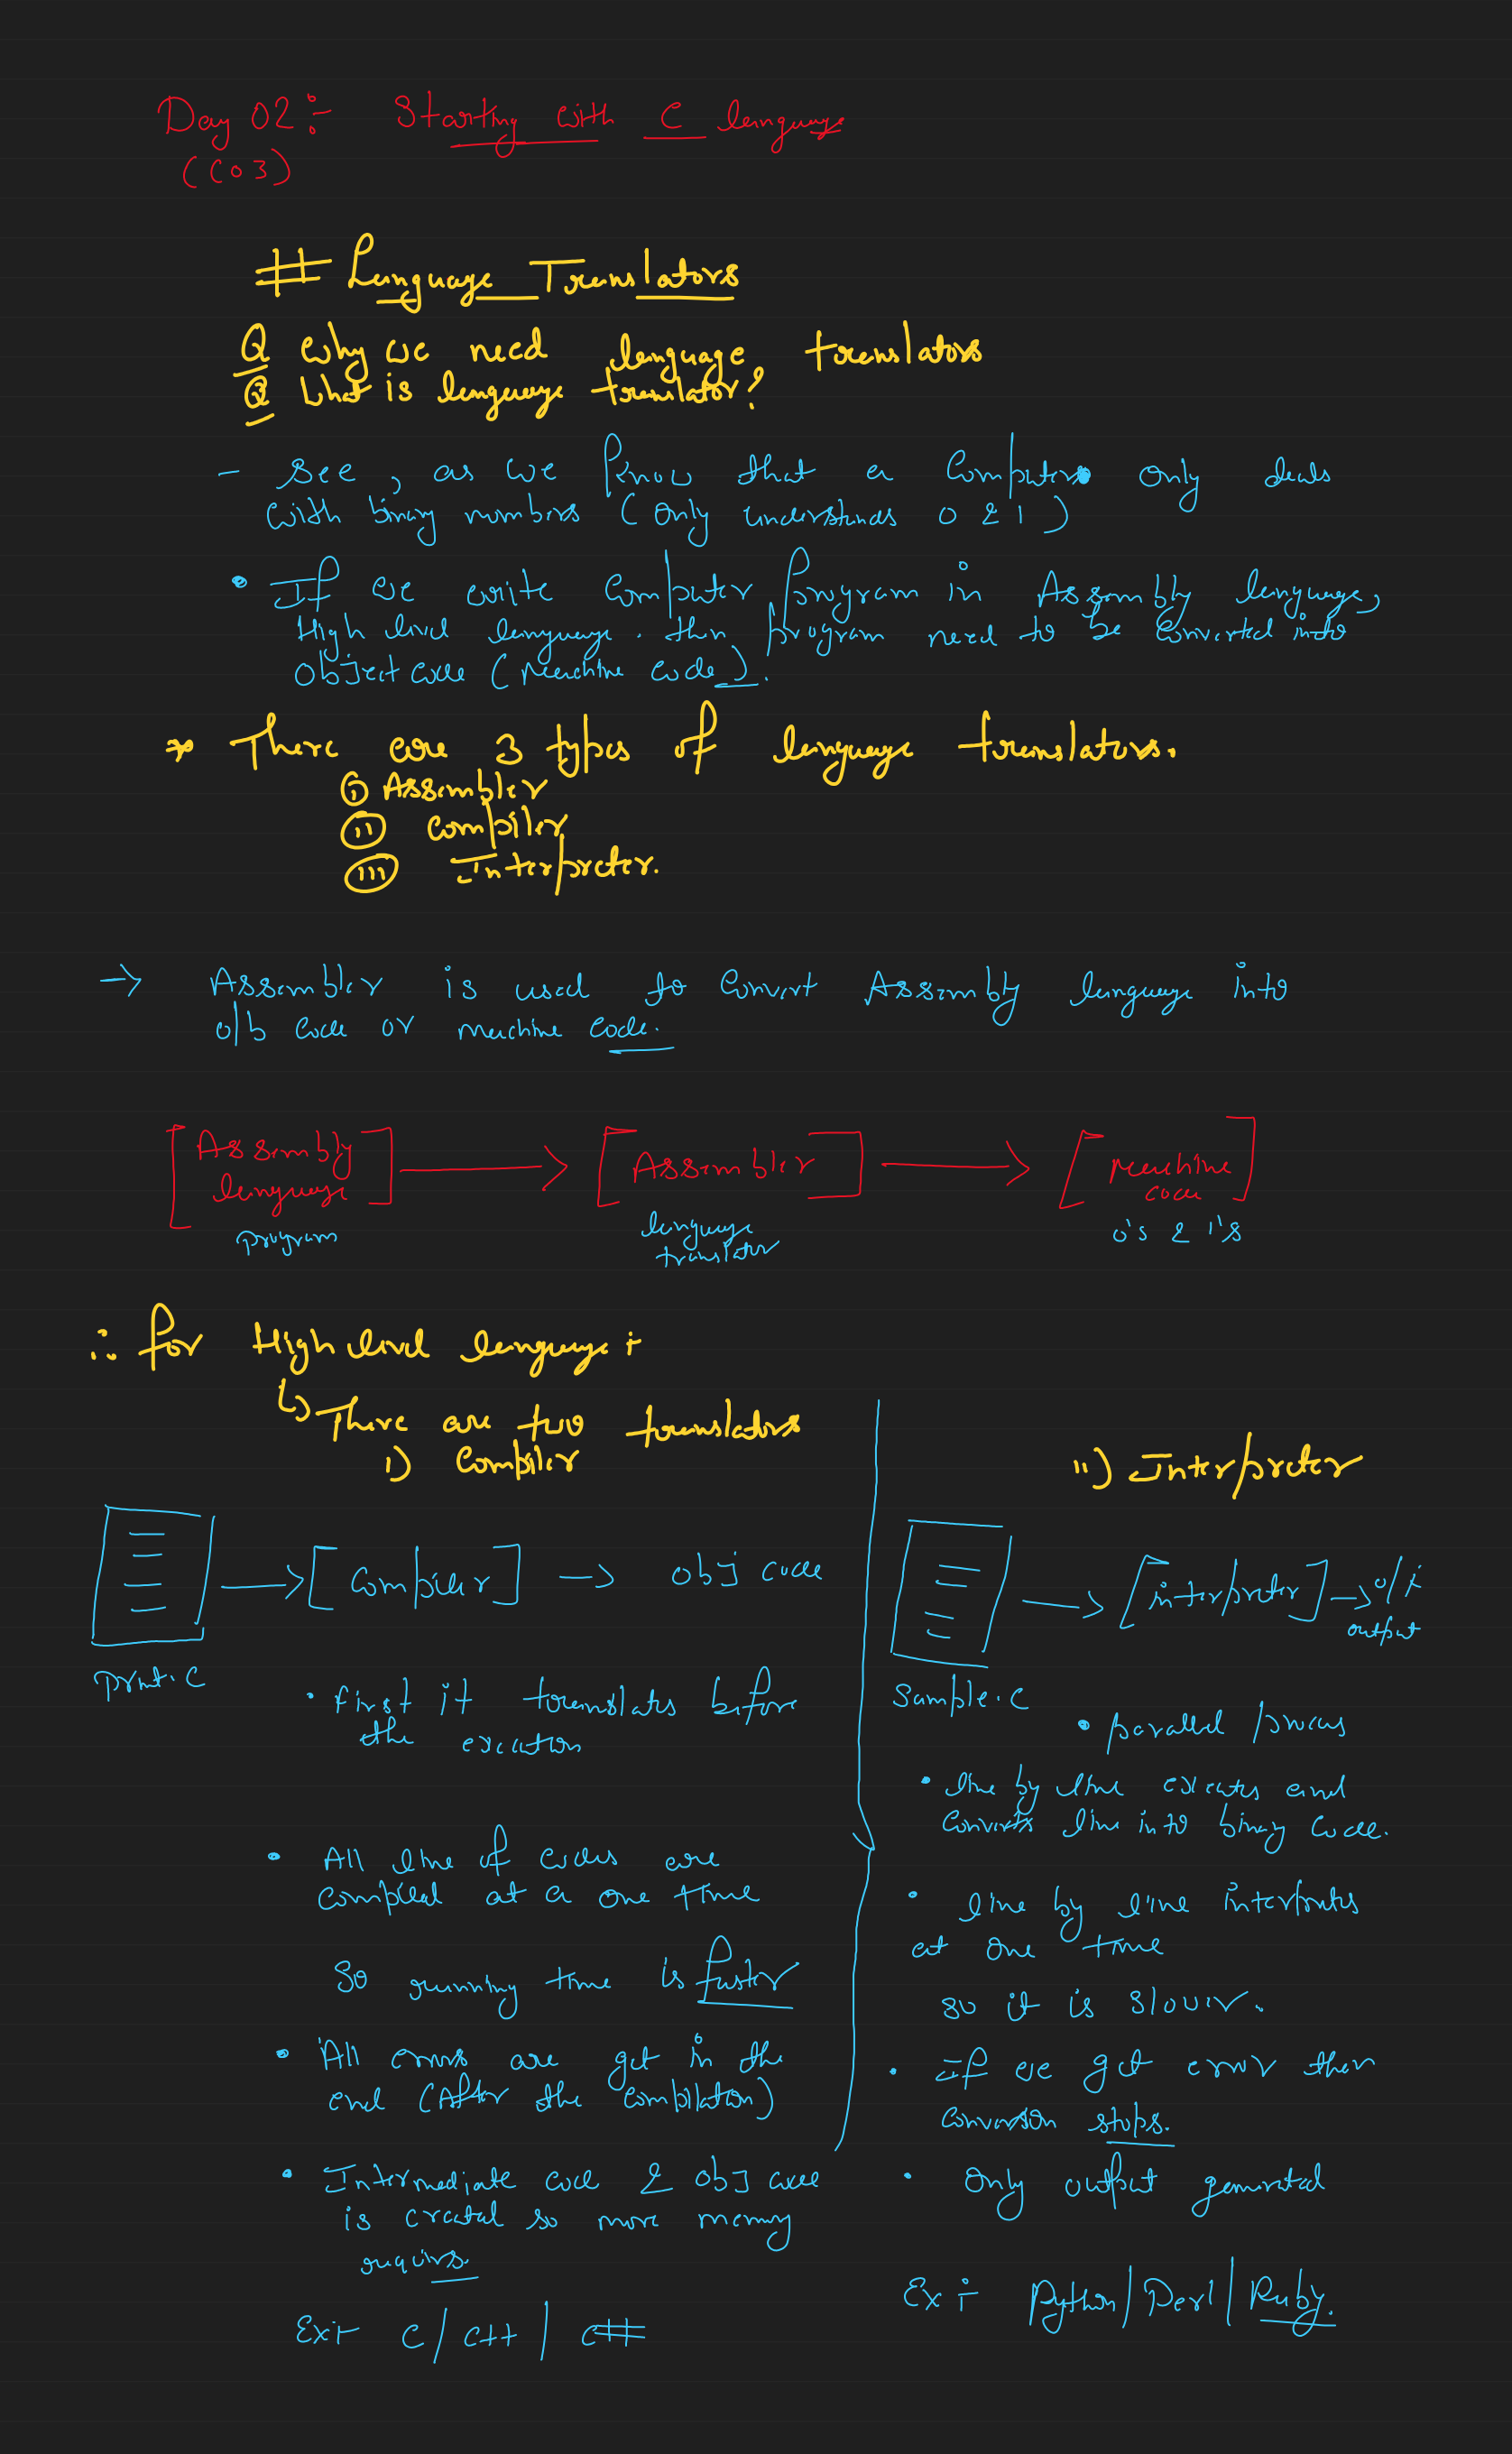 Day 02 :- Starting with C language
(C03)
# Language Translators
Q Why we need language translators
Q What is language translator?
- See, as we know that a Computers only deals
with binary numbers (only understands 0 & 1)
• If we write Computer program in Assembly language,
High level language. then program need to be Converted into
Object code (Machine code).
* There are 3 types of language translators.
(i) Assembler
(ii) Compiler
(iii) Interpreter.
→ Assembler is used to Convert Assembly language into
o/b code or machine code.
[Assembly → [Assembler] → [Machine
language] code]
program language 0's & 1's
translator
∴ for High level language :-
↳ There are two translators
i) Compiler
ii) Interpreter
→ [Compiler] → obj code
print.c
• First it translates before
the execution
• All line of codes are
compiled at a one time
So running time is faster
• All errors are get in the
end (After the Compilation)
• Intermediate code & obj code
is created so more memory
requires.
Ex :- C / C++ / C#
→ [interpreter] →
output
Sample.c
• parallel process
• line by line executes and
Converts line into binary code.
• line by line interprets
at one time
so it is slower.
• If we get error then
Conversion stops.
• Only output generated
Ex :- Python / Perl / Ruby.